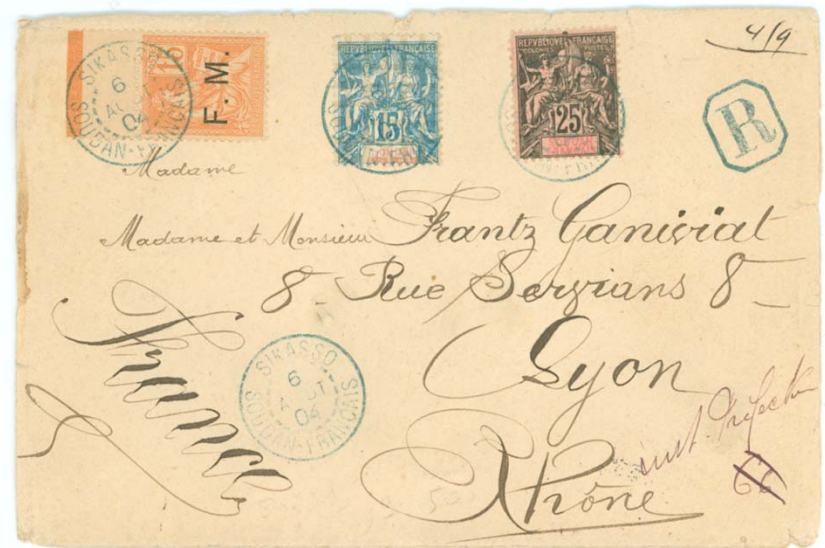 4/9
SIKASSO
6
AOUT
04
SOUDAN-FRANÇAIS
15
F.M.
REPUBLIQUE FRANÇAISE
COLONIES POSTES
15
REPUBLIQUE FRANÇAISE
COLONIES POSTES
25
R
Madame
Madame et Monsieur Frantz Ganiviat
8 - Rue Servians 8 -
Lyon
Rhône
France
SIKASSO
6
AOUT
04
SOUDAN-FRANÇAIS
Préfecture
66